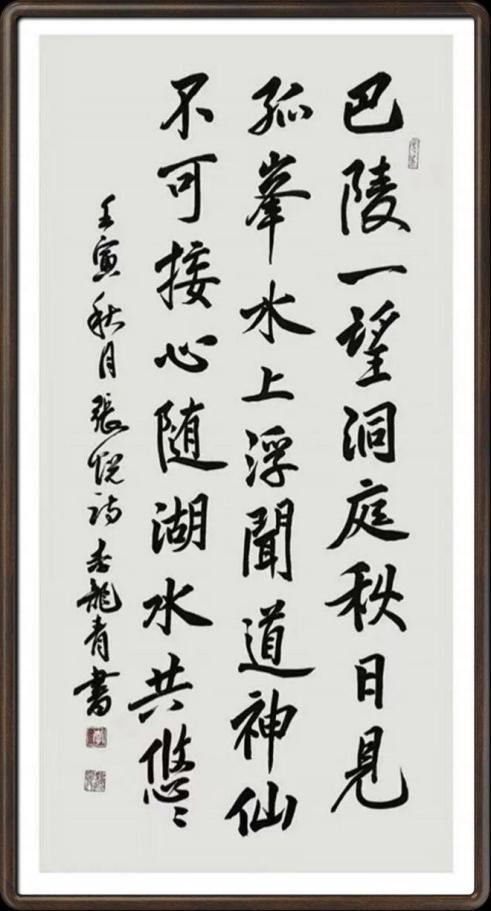 巴陵一望洞庭秋日見
孤峯水上浮聞道神仙
不可接心随湖水共悠〻
壬寅秋月張悦詩龍青書